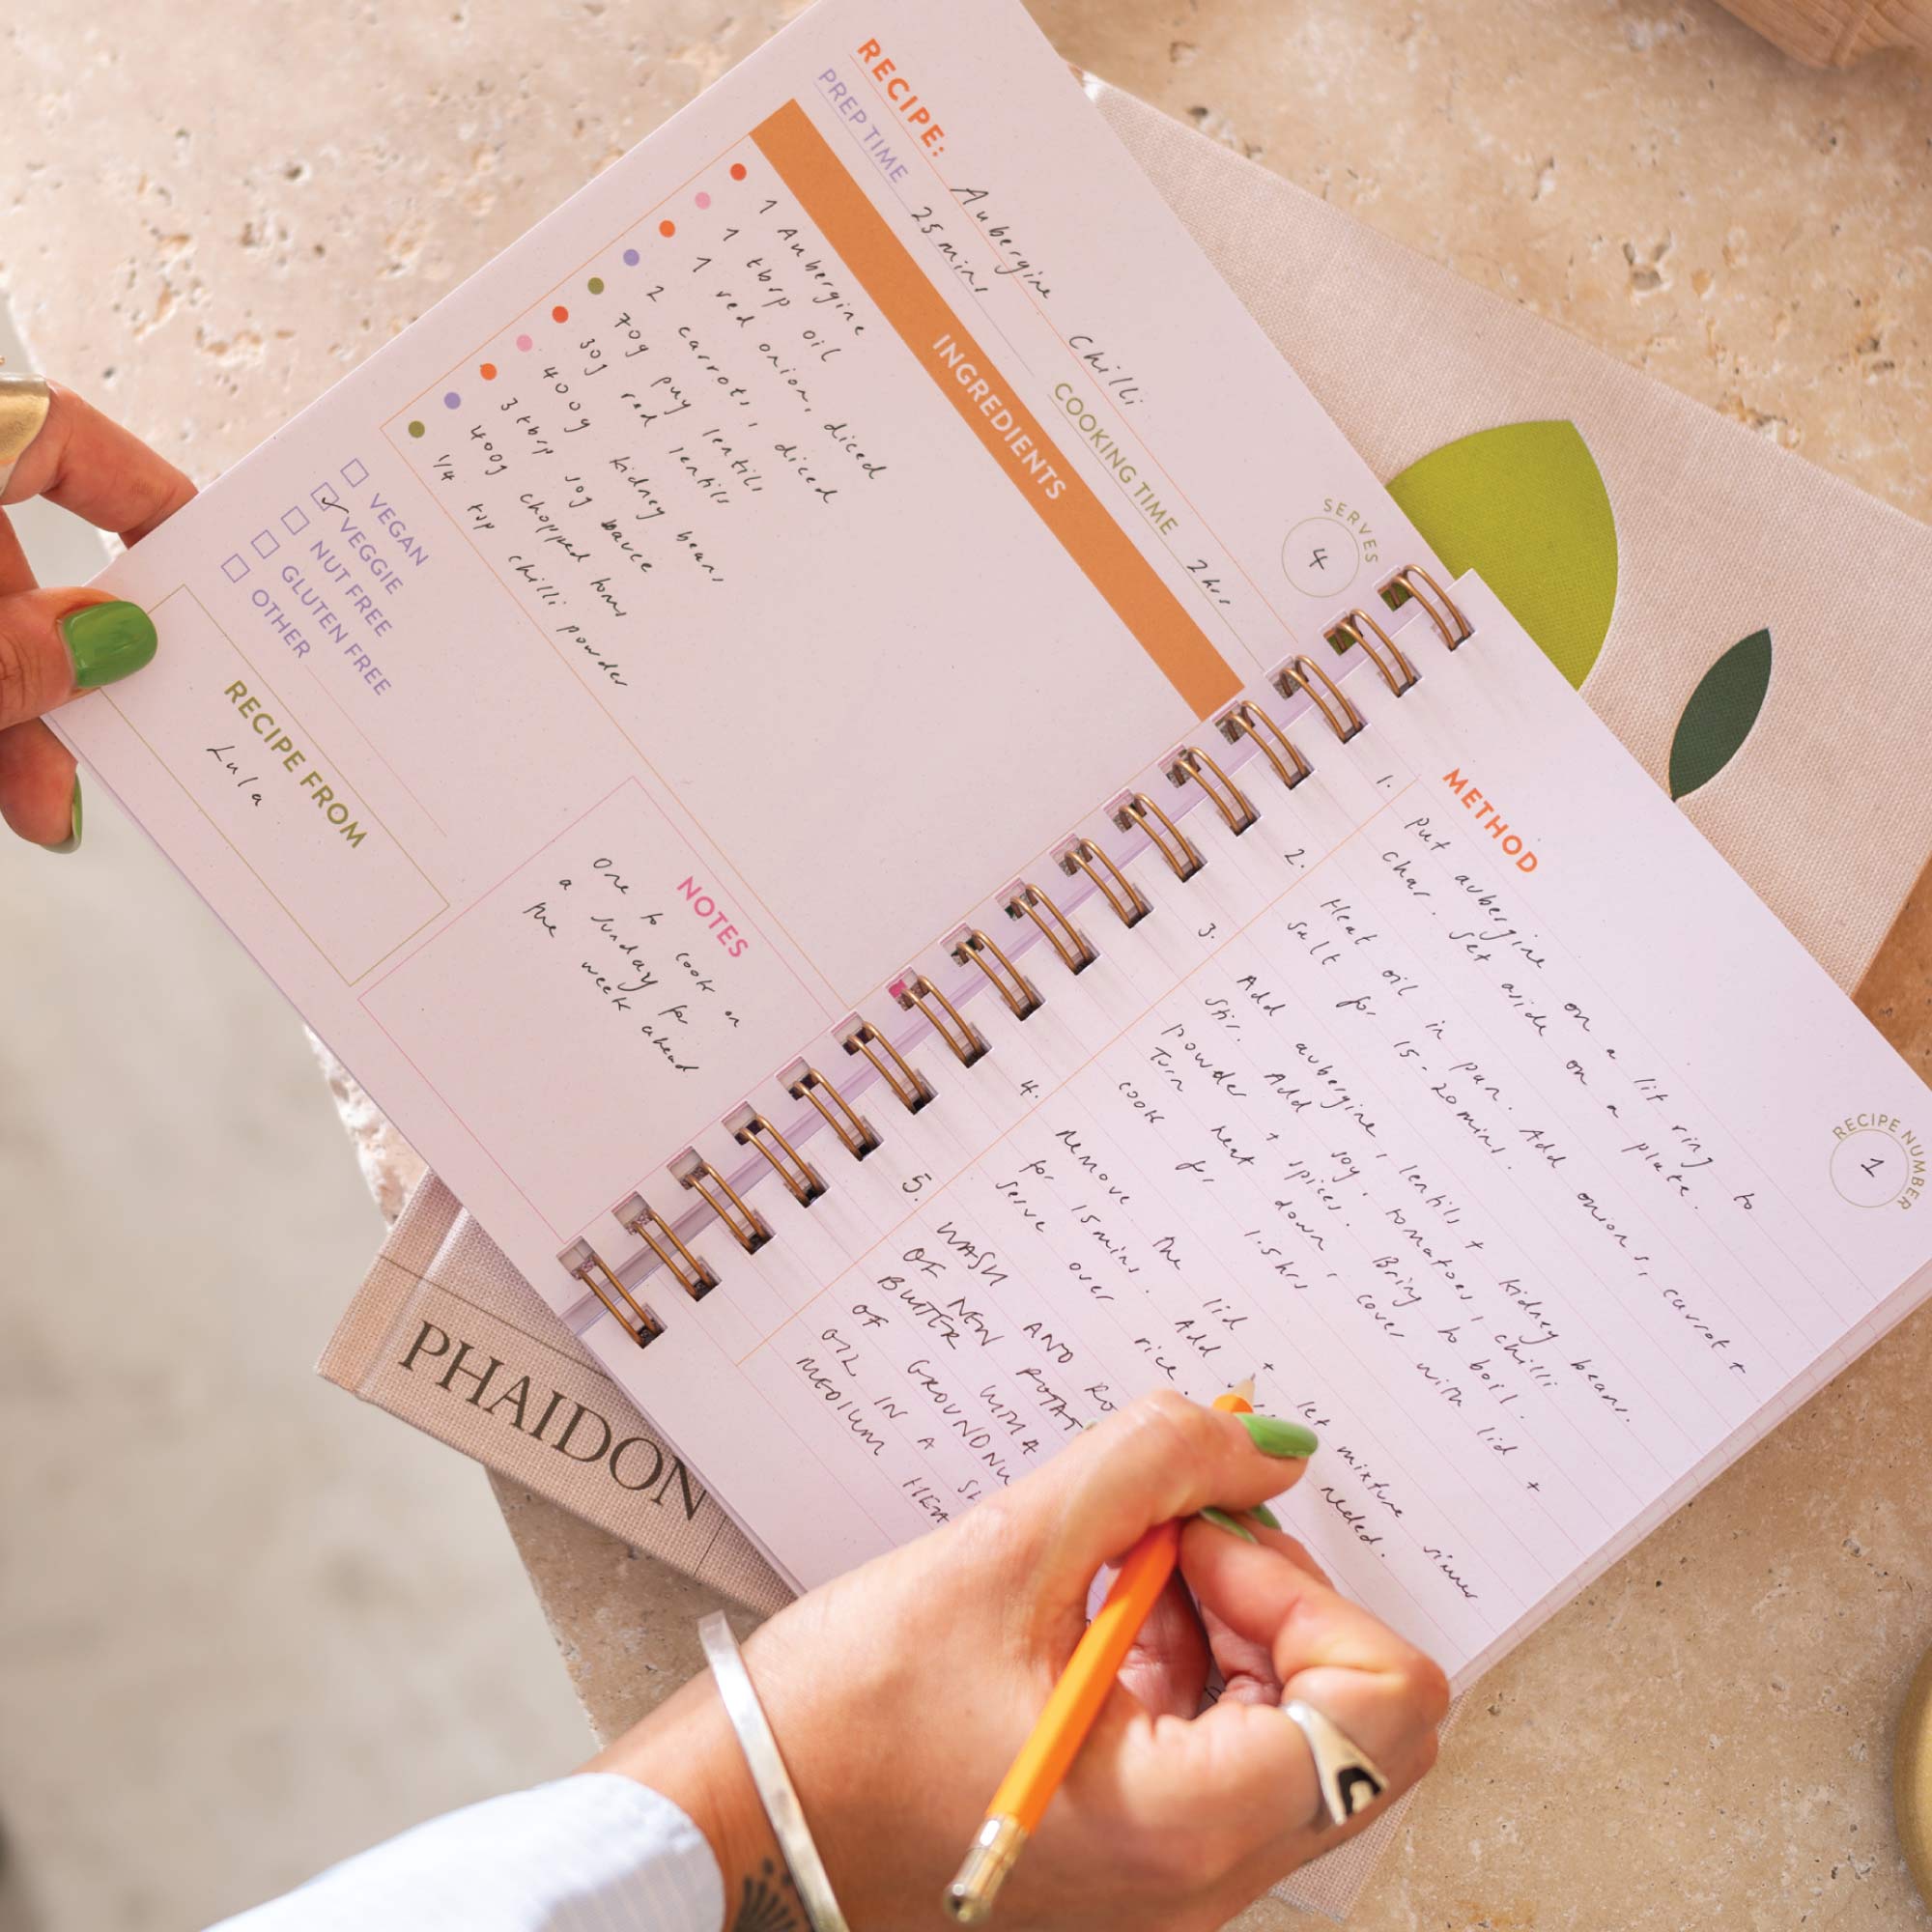 RECIPE: Aubergine Chilli
PREP TIME 25mins COOKING TIME 2hrs
SERVES
4
INGREDIENTS
1 Aubergine
1 tbsp oil
1 red onion, diced
2 carrots, diced
70g puy lentils
30g red lentils
400g kidney beans
3 tbsp soy sauce
400g chopped toms
1/4 tsp chilli powder
VEGAN
VEGGIE
NUT FREE
GLUTEN FREE
OTHER
RECIPE FROM
Lula
NOTES
One to cook on
a Sunday for
the week ahead
METHOD
RECIPE NUMBER
1
1. Put aubergine on a lit ring to
char. Set aside on a plate.
2. Heat oil in pan. Add onions, carrot +
salt for 15-20mins.
3. Add aubergine, lentils + kidney beans.
Stir. Add soy, tomatoes, chilli
powder + spices. Bring to boil.
Turn heat down, cover with lid +
cook for 1.5hrs
4. Remove the lid + let mixture simmer
for 15mins. Add needed.
Serve over rice.
5. WASH AND
OF NEW
BUTTER WITH A
OF
OIL IN A
MEDIUM
PHAIDON